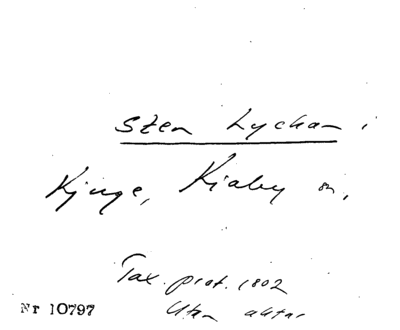 Sten Lychan i
Kjuge, Kiaby sn,
Tax. prot. 1802
Nr 10797 Utan aktar